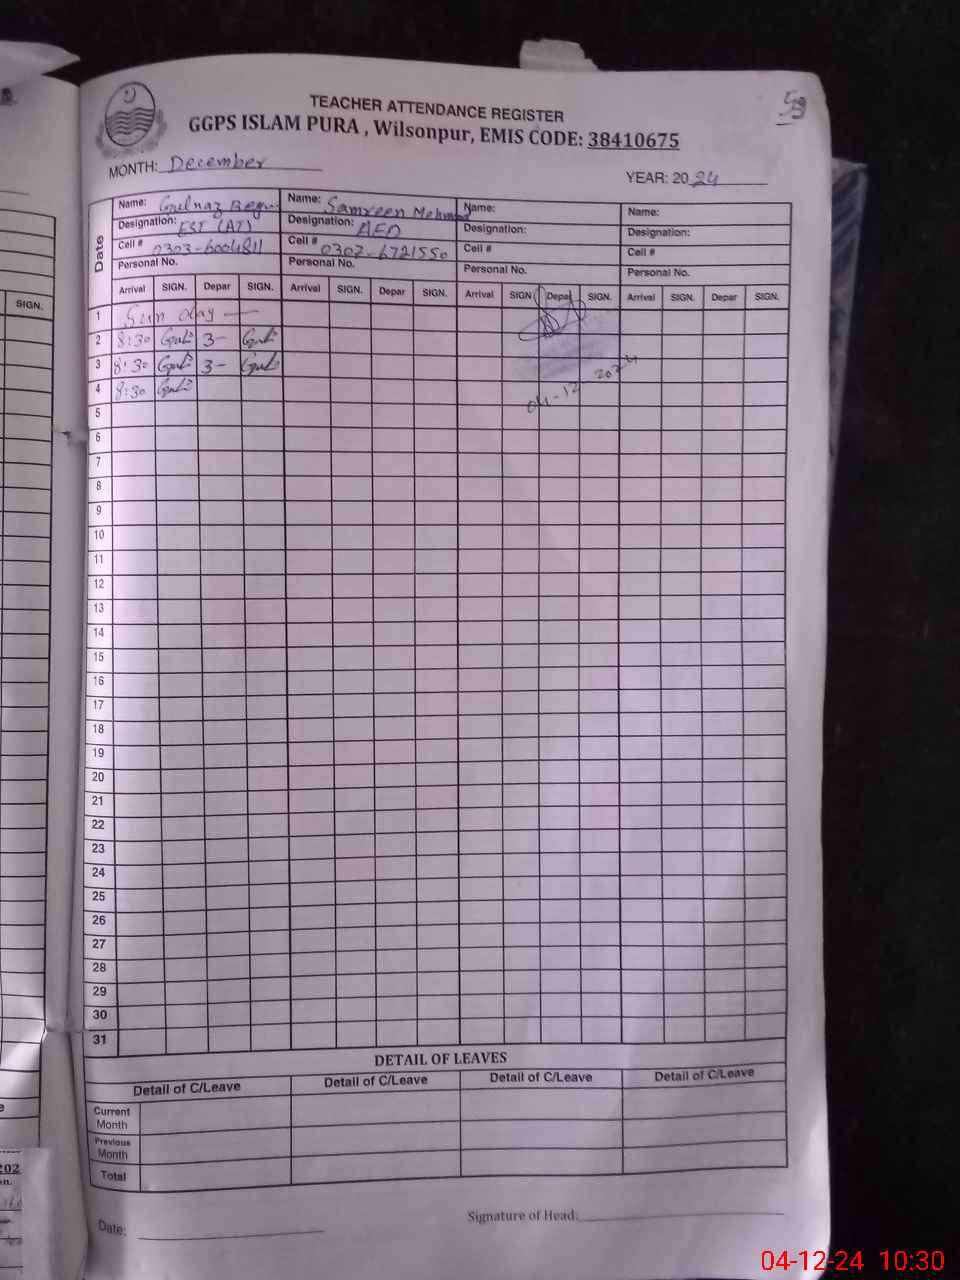 TEACHER ATTENDANCE REGISTER
GGPS ISLAM PURA , Wilsonpur, EMIS CODE: 38410675
MONTH: December
YEAR: 2024
Date
Name: Gulnaz Begum Name: Samreen Mehmood Name: Name:
Designation: EST (AT) Designation: AEO Designation: Designation:
Cell # 0303-6004811 Cell # 0307-6721550 Cell # Cell #
Personal No. Personal No. Personal No. Personal No.
Arrival SIGN. Depar SIGN. Arrival SIGN. Depar SIGN. Arrival SIGN. Depar SIGN. Arrival SIGN. Depar SIGN.
1 Sun day
2 8:30 3-
3 8:30 3-
4 8:30
04-12 2024
5
6
7
8
9
10
11
12
13
14
15
16
17
18
19
20
21
22
23
24
25
26
27
28
29
30
31
DETAIL OF LEAVES
Detail of C/Leave Detail of C/Leave Detail of C/Leave Detail of C/Leave
Current Month
Previous Month
Total
Date:
Signature of Head:
SIGN.
202
04-12-24 10:30